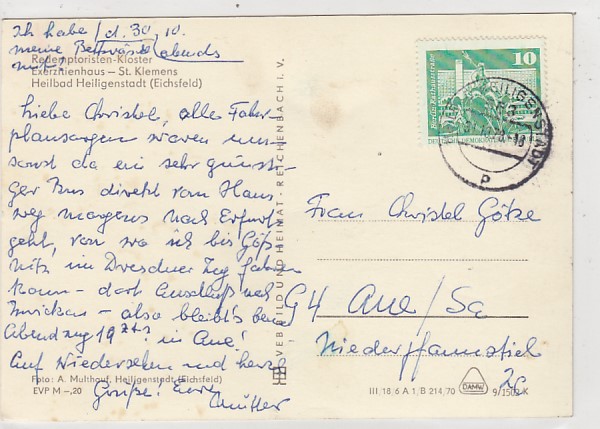 Ich habe / d. 30. 10.
meine Bettwäsche abends
mit!
Redemptoristen-Kloster
Exerzitienhaus — St. Klemens
Heilbad Heiligenstadt (Eichsfeld)
Liebe Christel, alle Fahr-
plansorgen waren um-
sonst da ein sehr günsti-
ger Bus direkt vom Haus
weg morgens nach Erfurt
geht, von wo ich bis Göß-
nitz im Dresdner Zug fahren
kann - dort Anschluß nach
Zwickau - also bleibt's beim
Abendzug 19 in Aue!
Auf Wiedersehen und herzl.
Grüße! Eure
Mutter
Foto: A. Multhauf, Heiligenstadt (Eichsfeld)
EVP M –,20
VEB BILD UND HEIMAT · REICHENBACH I. V.
10
Berlin, Rathausstraße
DEUTSCHE DEMOKRATISCHE
HEILIGENSTADT
P
Frau Christel Götze
94 Aue/Sa
Niederpfannstiel
III/18/6 A 1/B 214/70
DAMW
9/1502 K